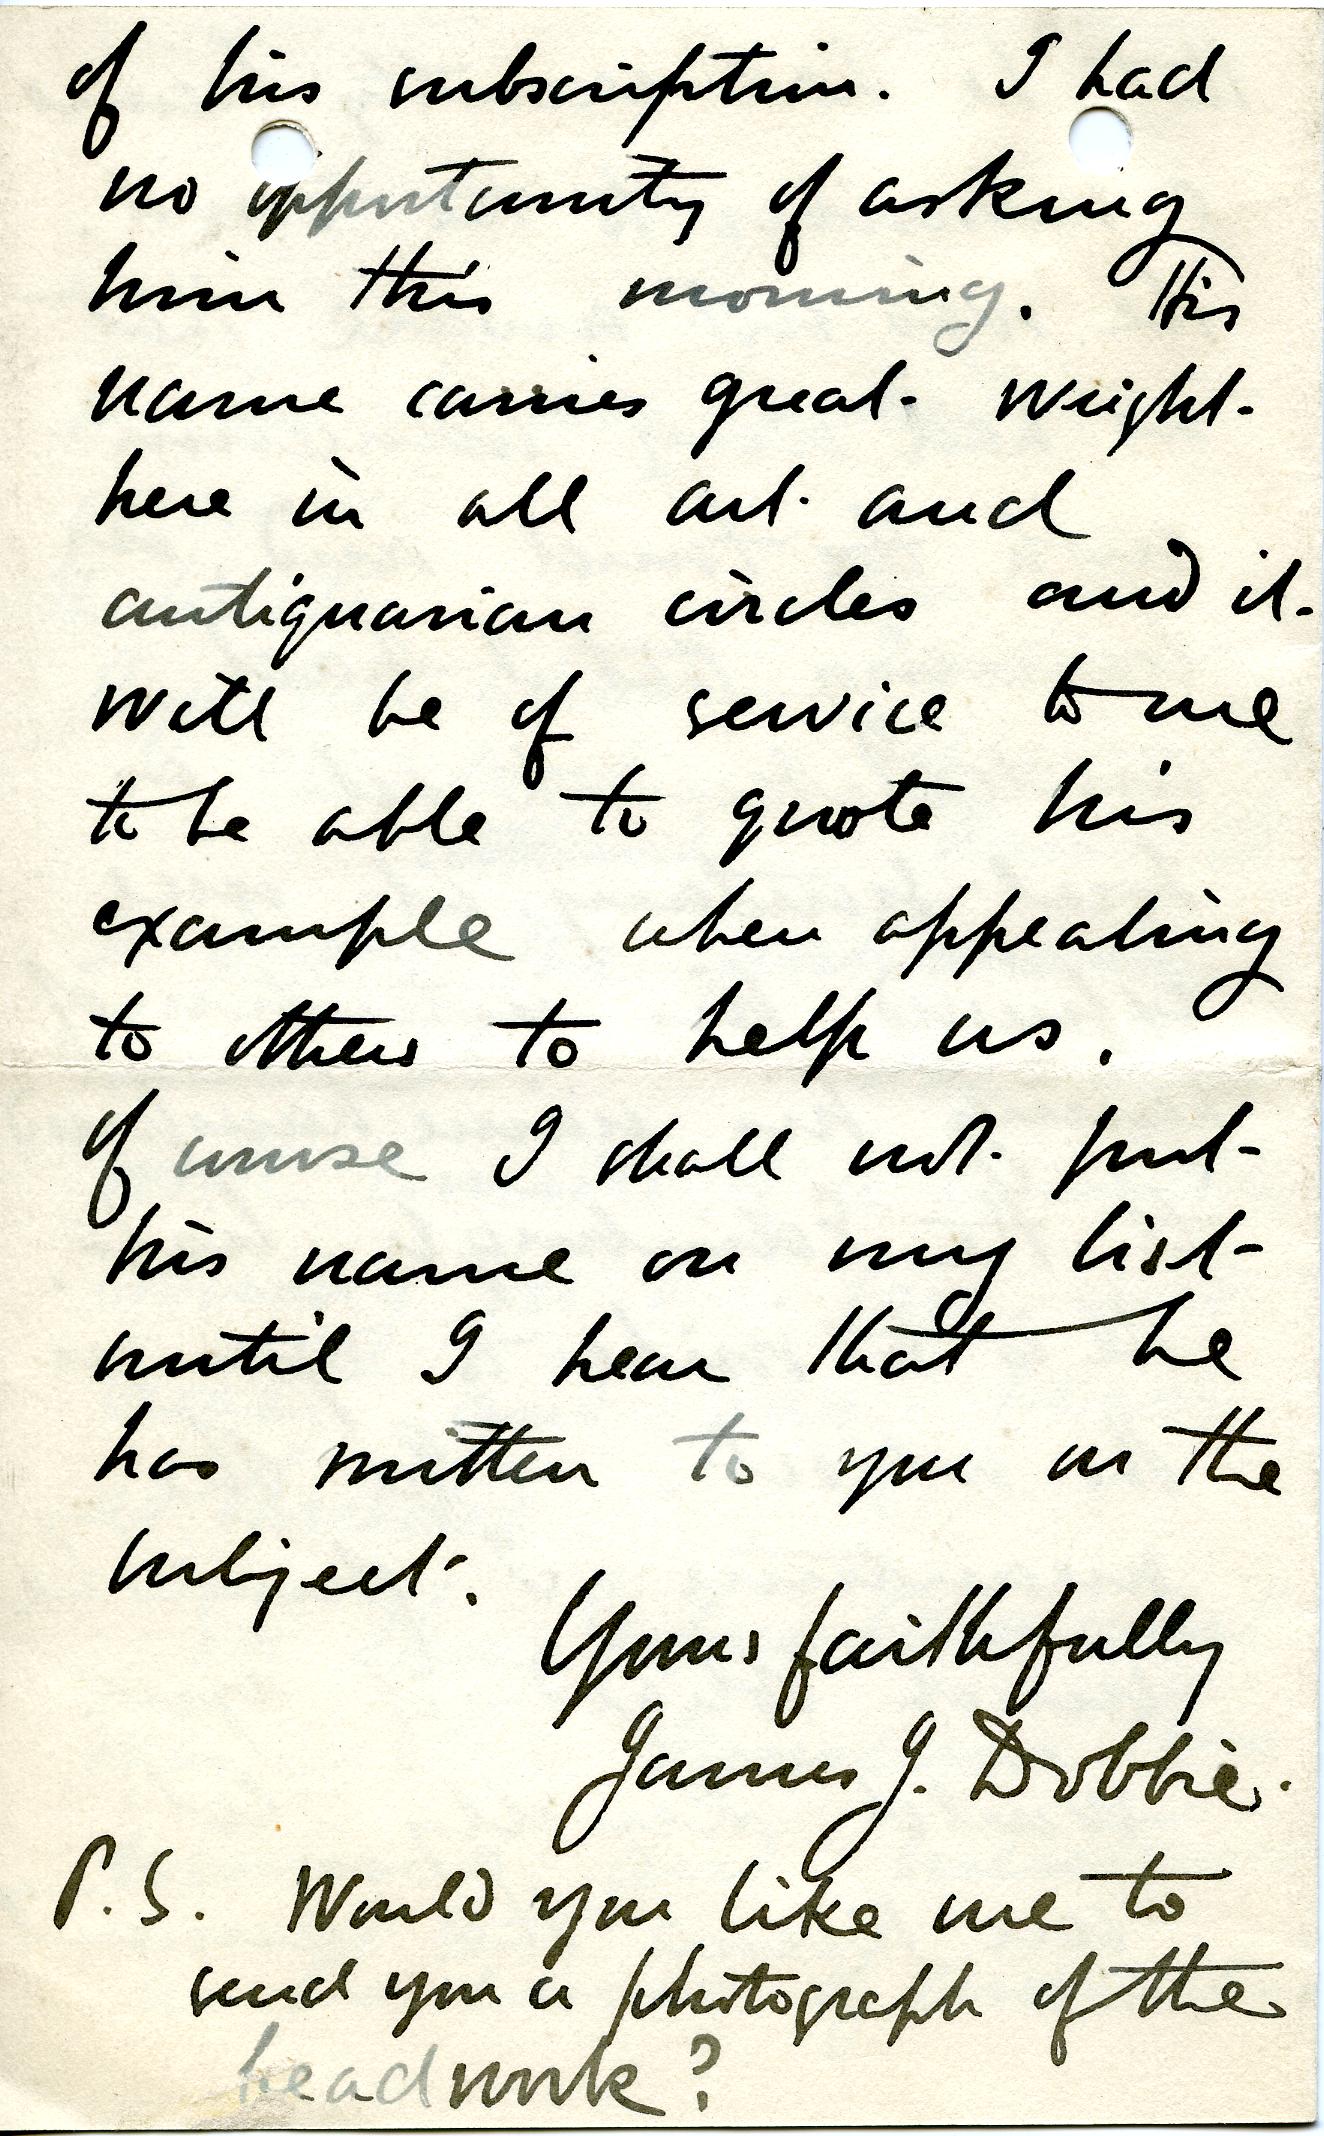 of his subscription. I had
no opportunity of asking
him this morning. His
name carries great weight
here in all art and
antiquarian circles and it
will be of service to me
to be able to quote his
example when appealing
to others to help us.
of course I shall not put
his name on my list
until I hear that he
has written to you on the
subject.
Yours faithfully
James J. Dobbie.
P.S. Would you like me to
send you a photograph of the
beadwork?